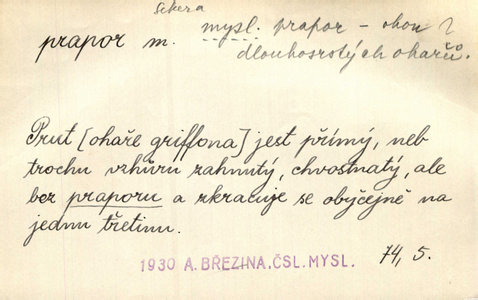 Sekera
prapor m. mysl. prapor – ohon ?
dlouhosrstých ohařů.
Prut [ohaře griffona] jest přímý, neb
trochu vzhůru zahnutý, chvostnatý, ale
bez praporu a zkracuje se obyčejně na
jednu třetinu.
74, 5.
1930 A. BŘEZINA, ČSL. MYSL.